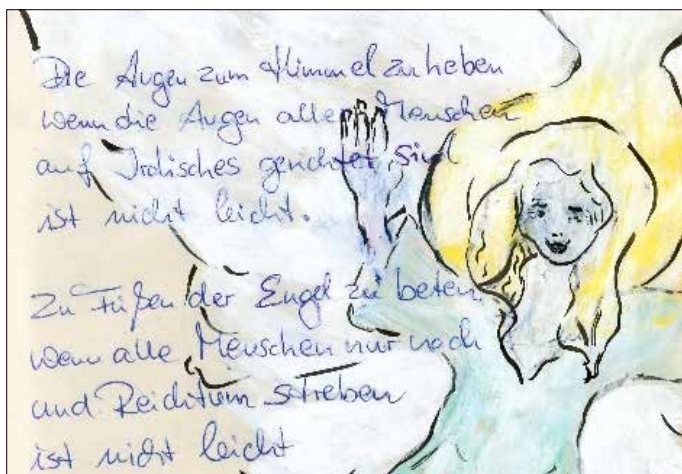 Die Augen zum Himmel zu heben
wenn die Augen aller Menschen
auf Irdisches gerichtet sind
ist nicht leicht.
Zu Füßen der Engel zu beten
wenn alle Menschen nur noch
und Reichtum streben
ist nicht leicht